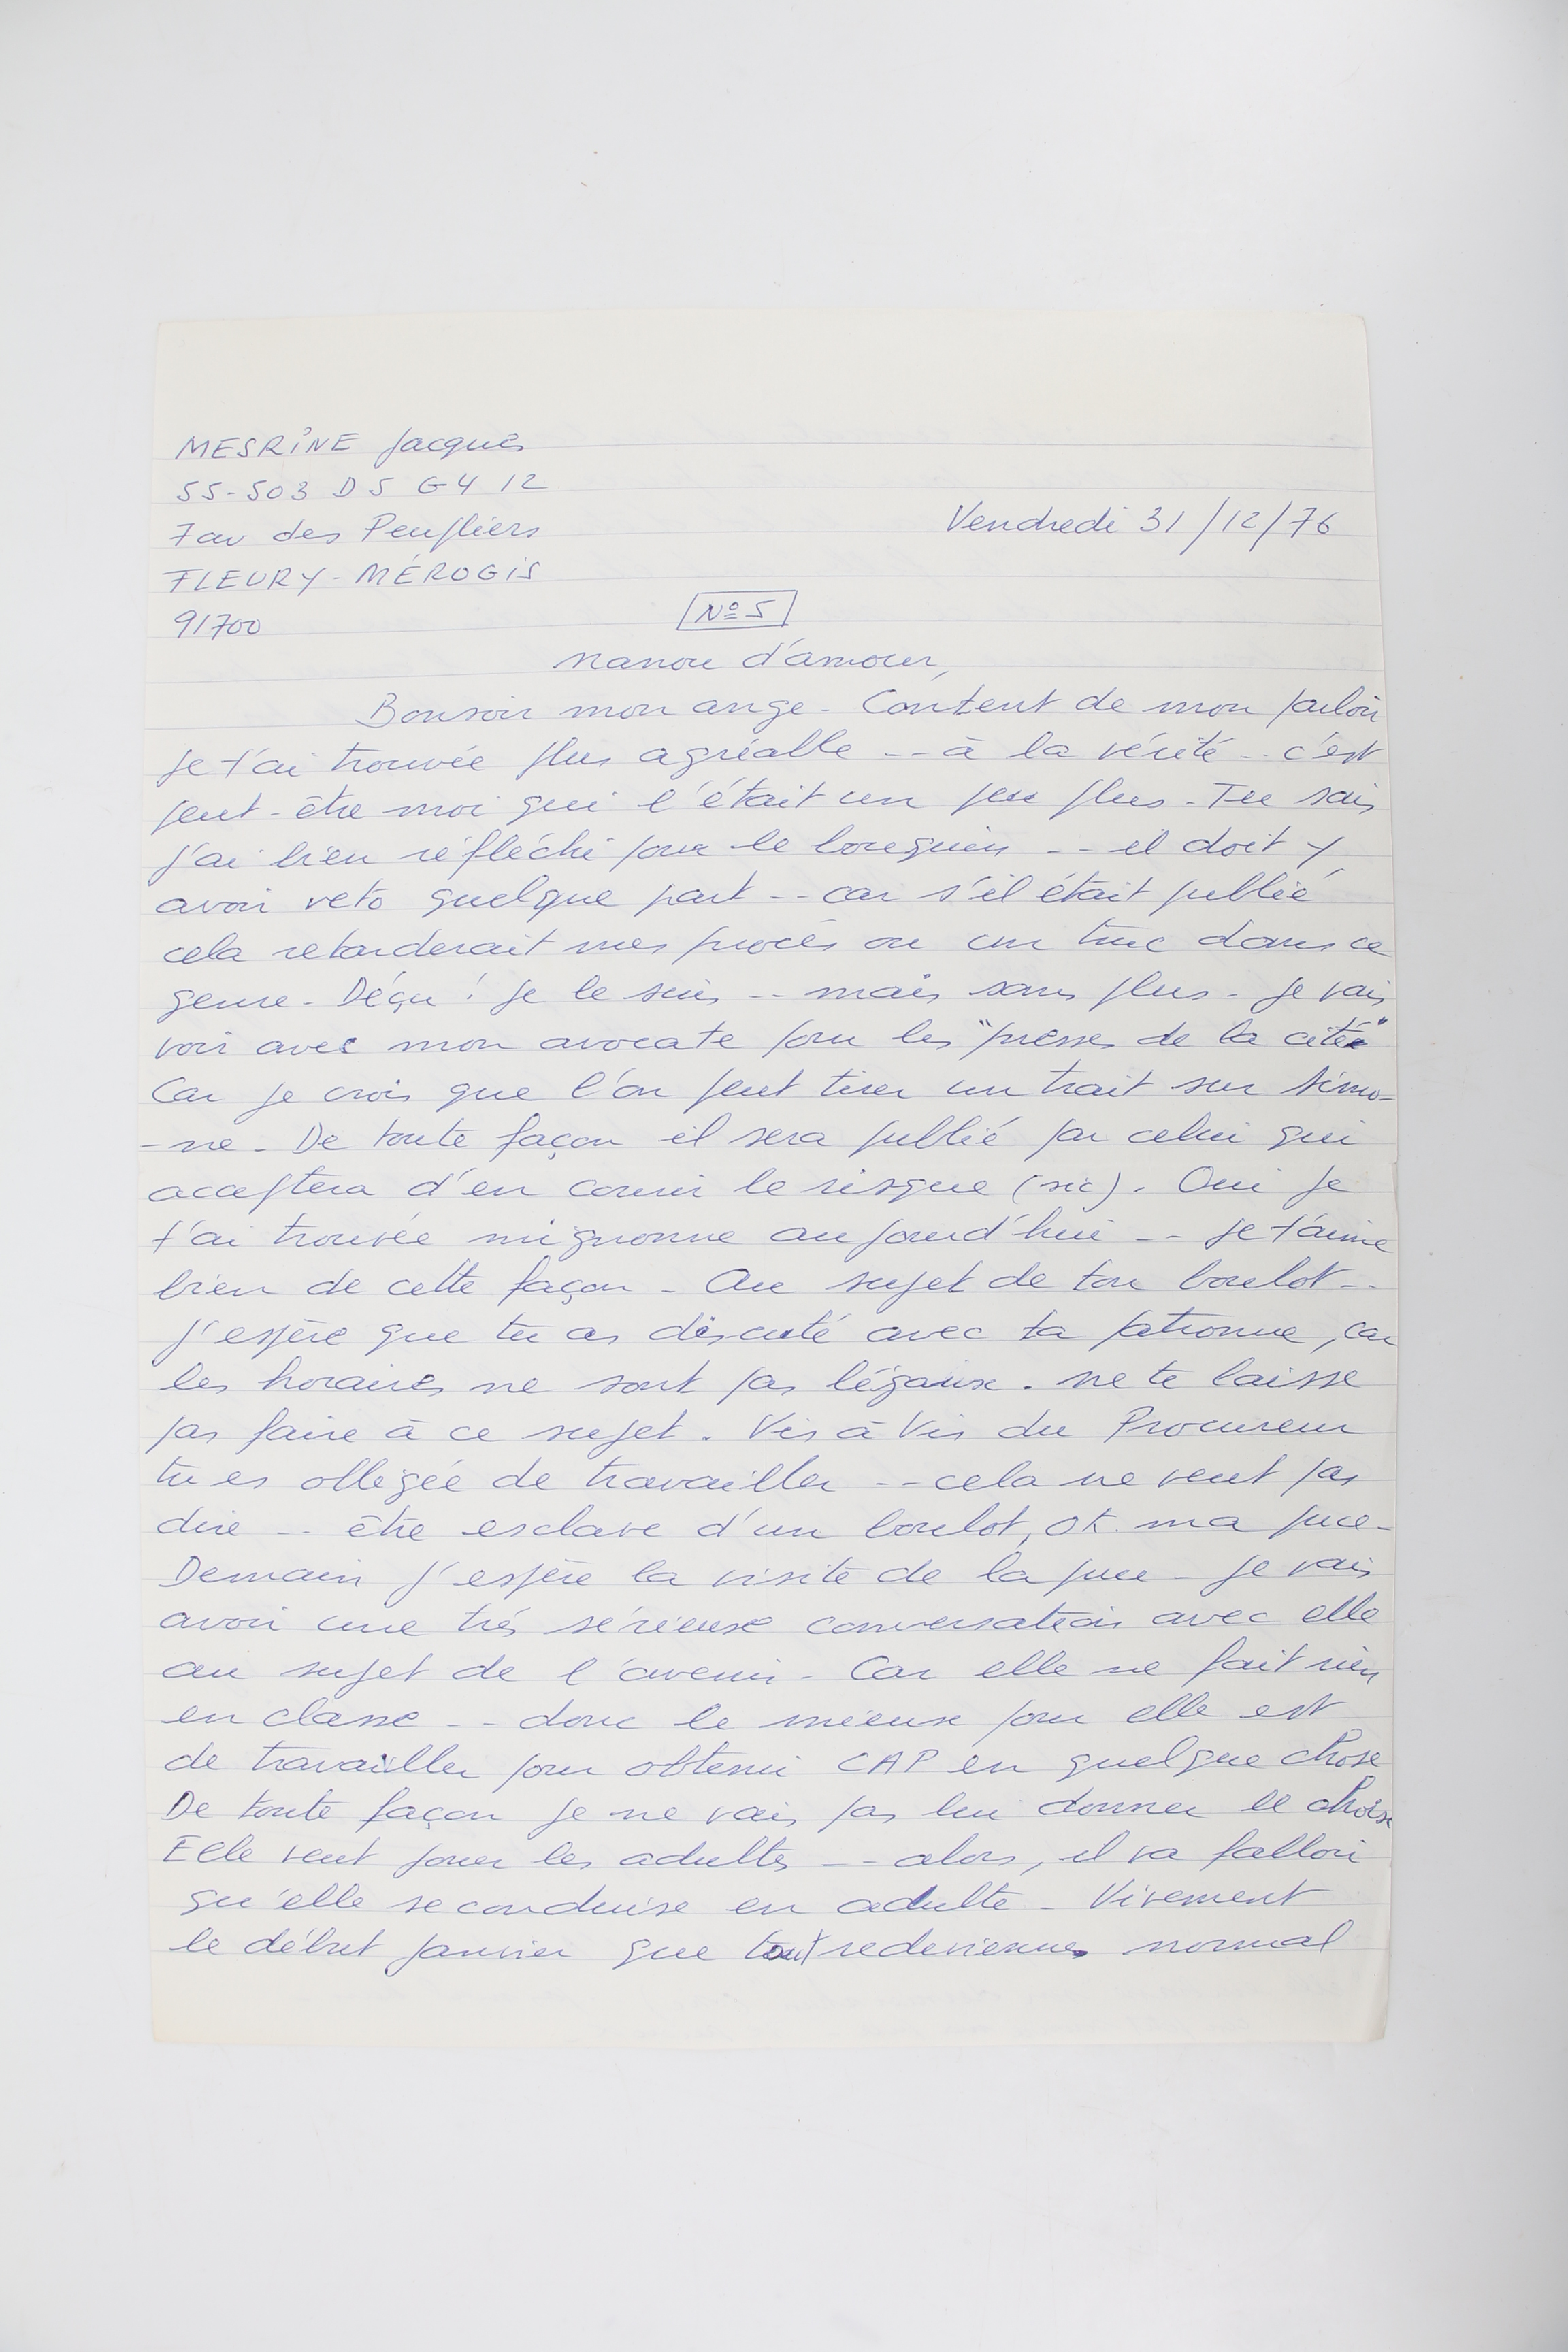 MESRINE Jacques
55-503 D5 G4 12
7 av des Peupliers
Vendredi 31/12/76
FLEURY-MÉROGIS
91700
No 5
Nanou d'amour,
Bonsoir mon ange - Content de mon parloir
je t'ai trouvée plus agréable -- à la vérité -- c'est
peut-être moi qui l'était un peu plus - Tu sais
j'ai bien réfléchi pour le bouquin -- il doit y
avoir veto quelque part -- car s'il était publié
cela retarderait mes procès ou un truc dans ce
genre - Déçu ! je le suis -- mais sans plus - je vais
voir avec mon avocate pour les "presses de la cité"
Car je crois que l'on peut tirer un trait sur Simo-
-ne - De toute façon il sera publié par celui qui
acceptera d'en courir le risque (sic). Oui je
t'ai trouvée mignonne aujourd'hui -- je t'aime
bien de cette façon - Au sujet de ton boulot --
j'espère que tu as discuté avec ta patronne, car
les horaires ne sont pas légaux. ne te laisse
pas faire à ce sujet. Vis à Vis du Procureur
tu es obligée de travailler -- cela ne veut pas
dire -- être esclave d'un boulot, OK. ma puce -
Demain j'espère la visite de la puce - je vais
avoir une très sérieuse conversation avec elle
au sujet de l'avenir - Car elle ne fait rien
en classe -- donc le mieux pour elle est
de travailler pour obtenir CAP en quelque chose
De toute façon je ne vais pas lui donner le choix
Elle veut jouer les adultes -- alors, il va falloir
qu'elle se conduise en adulte - Vivement
le début janvier que tout redevienne normal